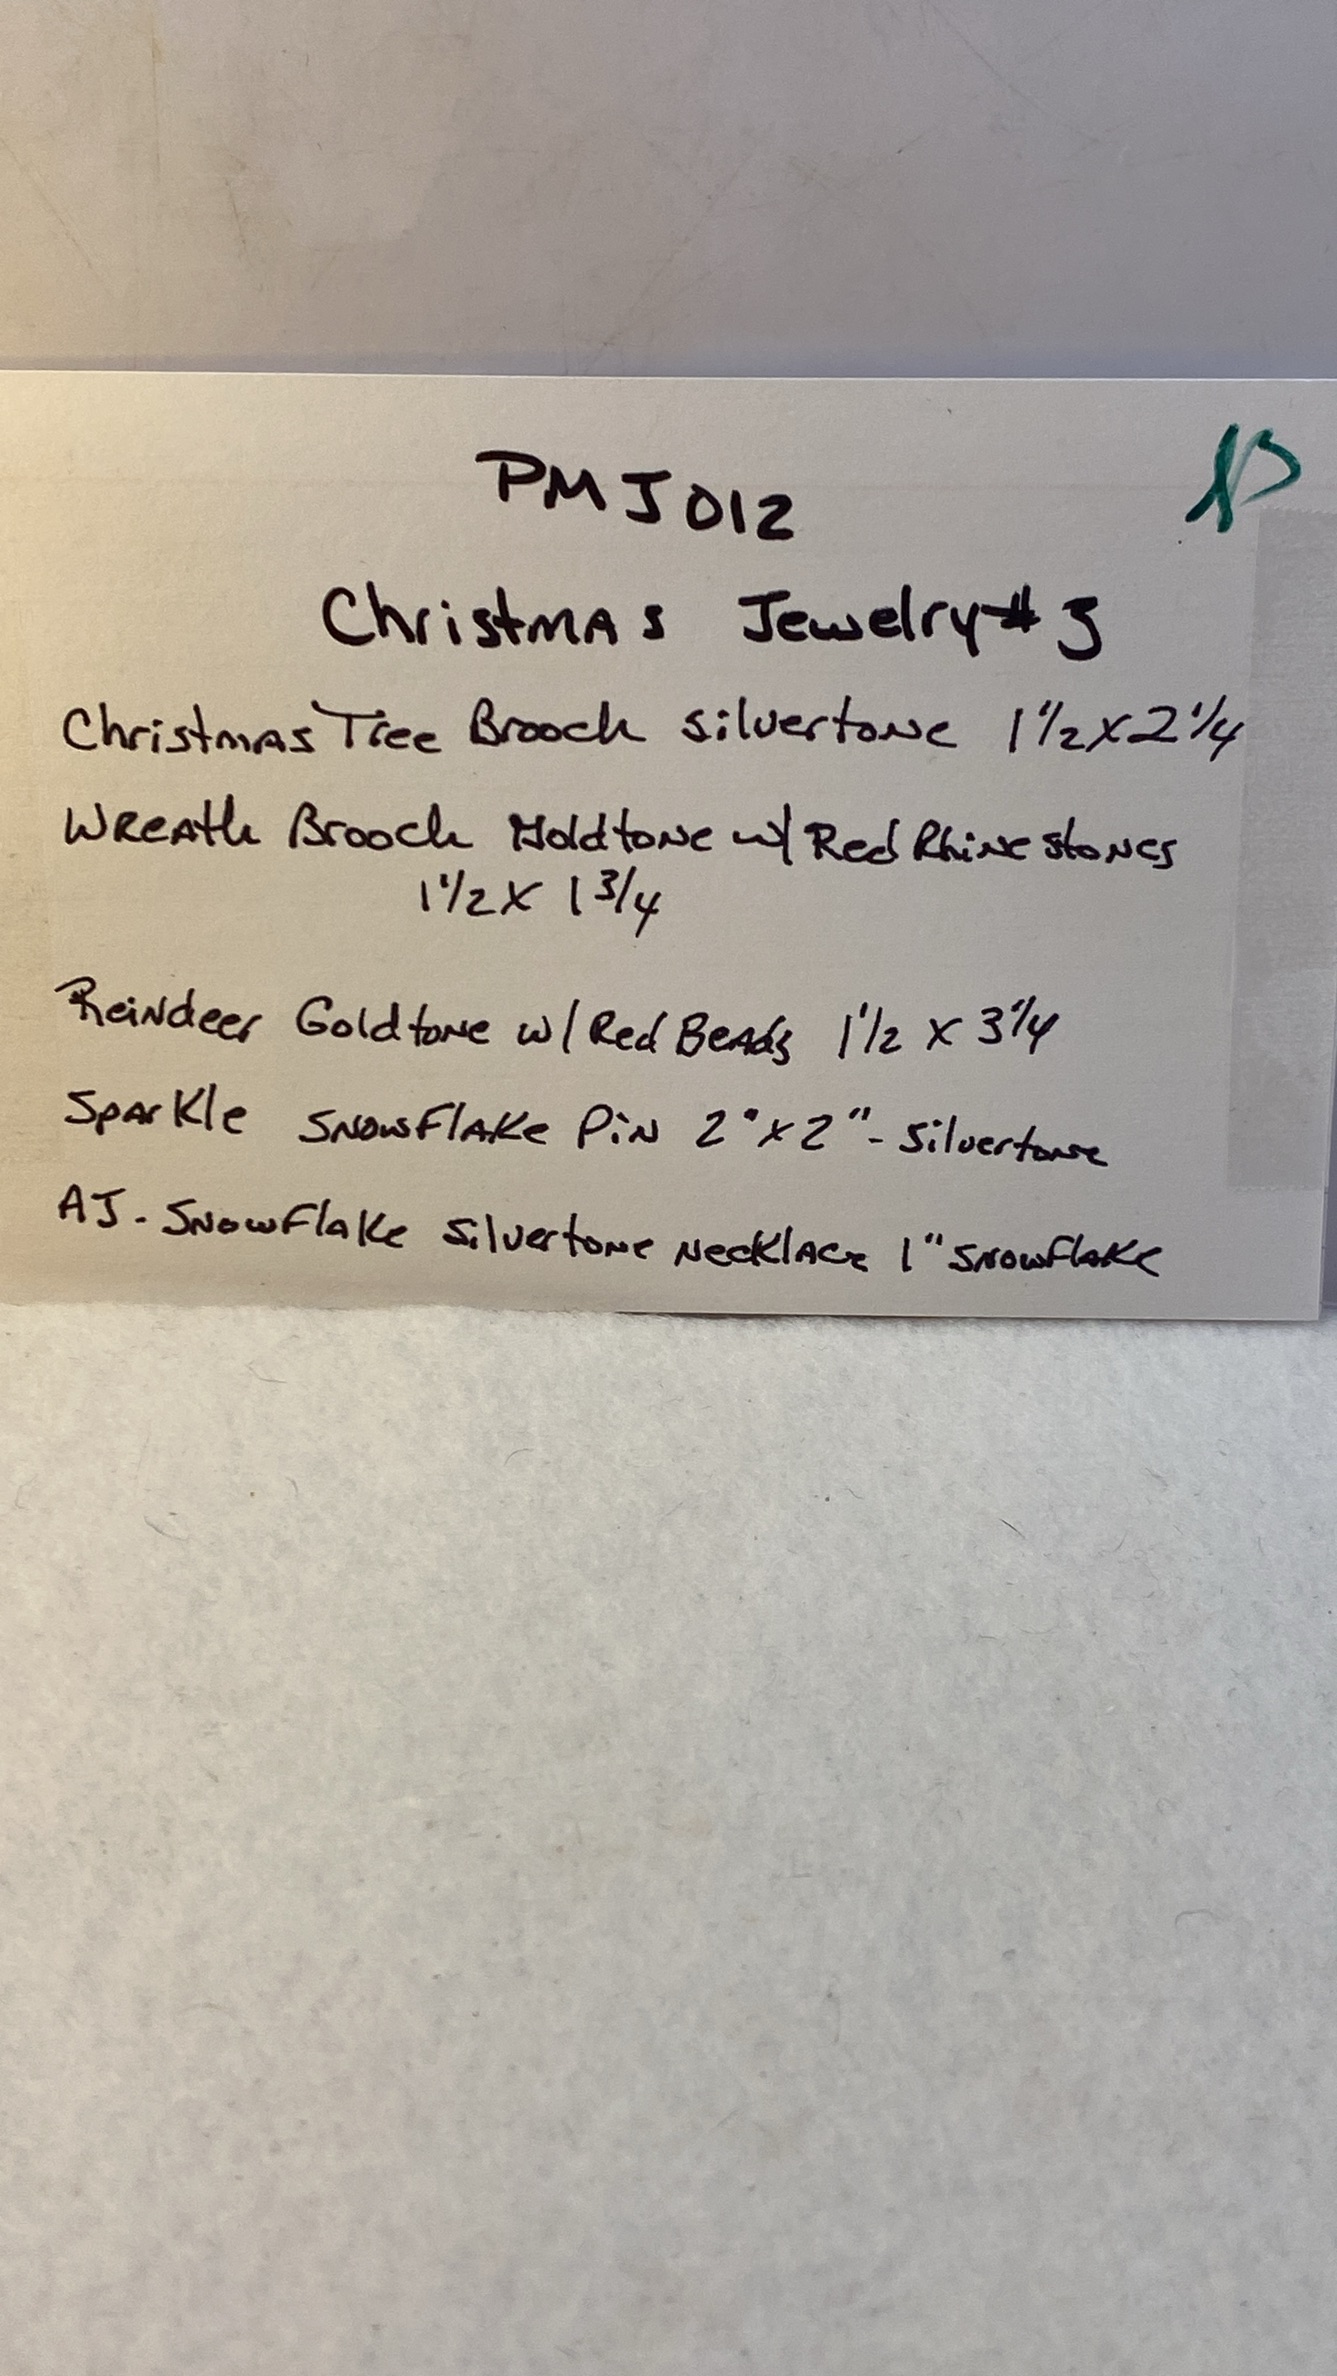 PMJ012
Christmas Jewelry #3
Christmas Tree Brooch silvertone 1 1/2 x 2 1/4
Wreath Brooch Goldtone w/ Red Rhinestones
1 1/2 x 1 3/4
Reindeer Goldtone w/ Red Beads 1 1/2 x 3 1/4
Sparkle Snowflake Pin 2" x 2" - silvertone
AJ - Snowflake silvertone Necklace 1" snowflake